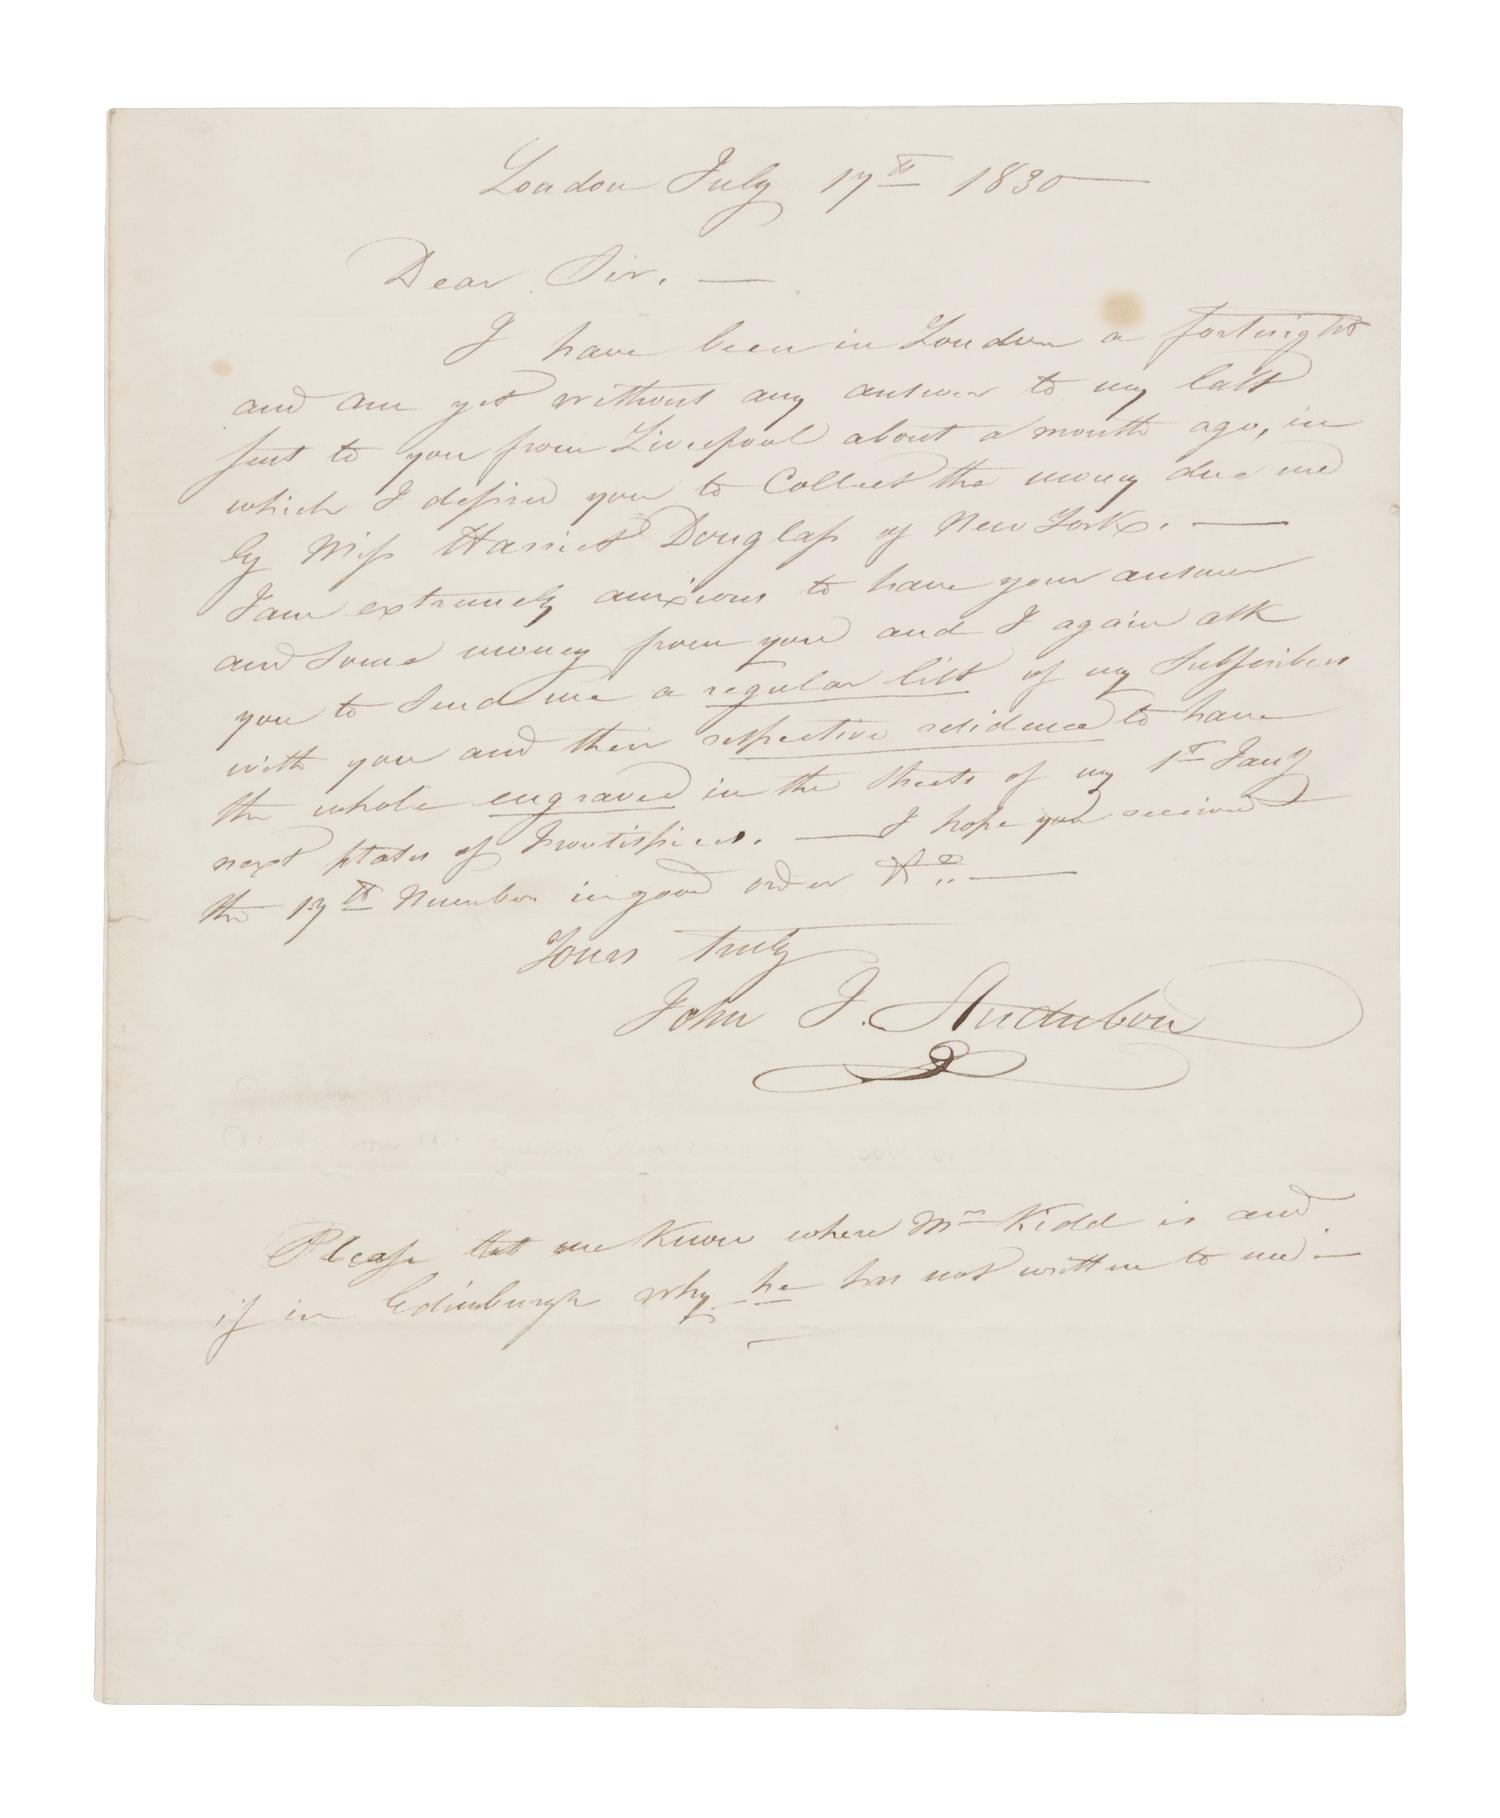 London July 17th 1830
Dear Sir. —
I have been in London a fortnight
and am yet without any answer to my last
sent to you from Liverpool about a month ago, in
which I desired you to Collect the money due me
by Miss Harriet Douglass of New York. —
I am extremely anxious to have your answer
and some money from you and I again ask
you to send me a regular list of my Subscribers
with you and their respective residence to have
the whole engraved in the sheets of my 1st Jany
next plates of Frontispieces. — I hope you received
the 17th Number in good order &c. —
Yours truly
John J. Audubon
Please let me Know where Mr Kidd is and
if in Edinburgh why he has not written to me. —